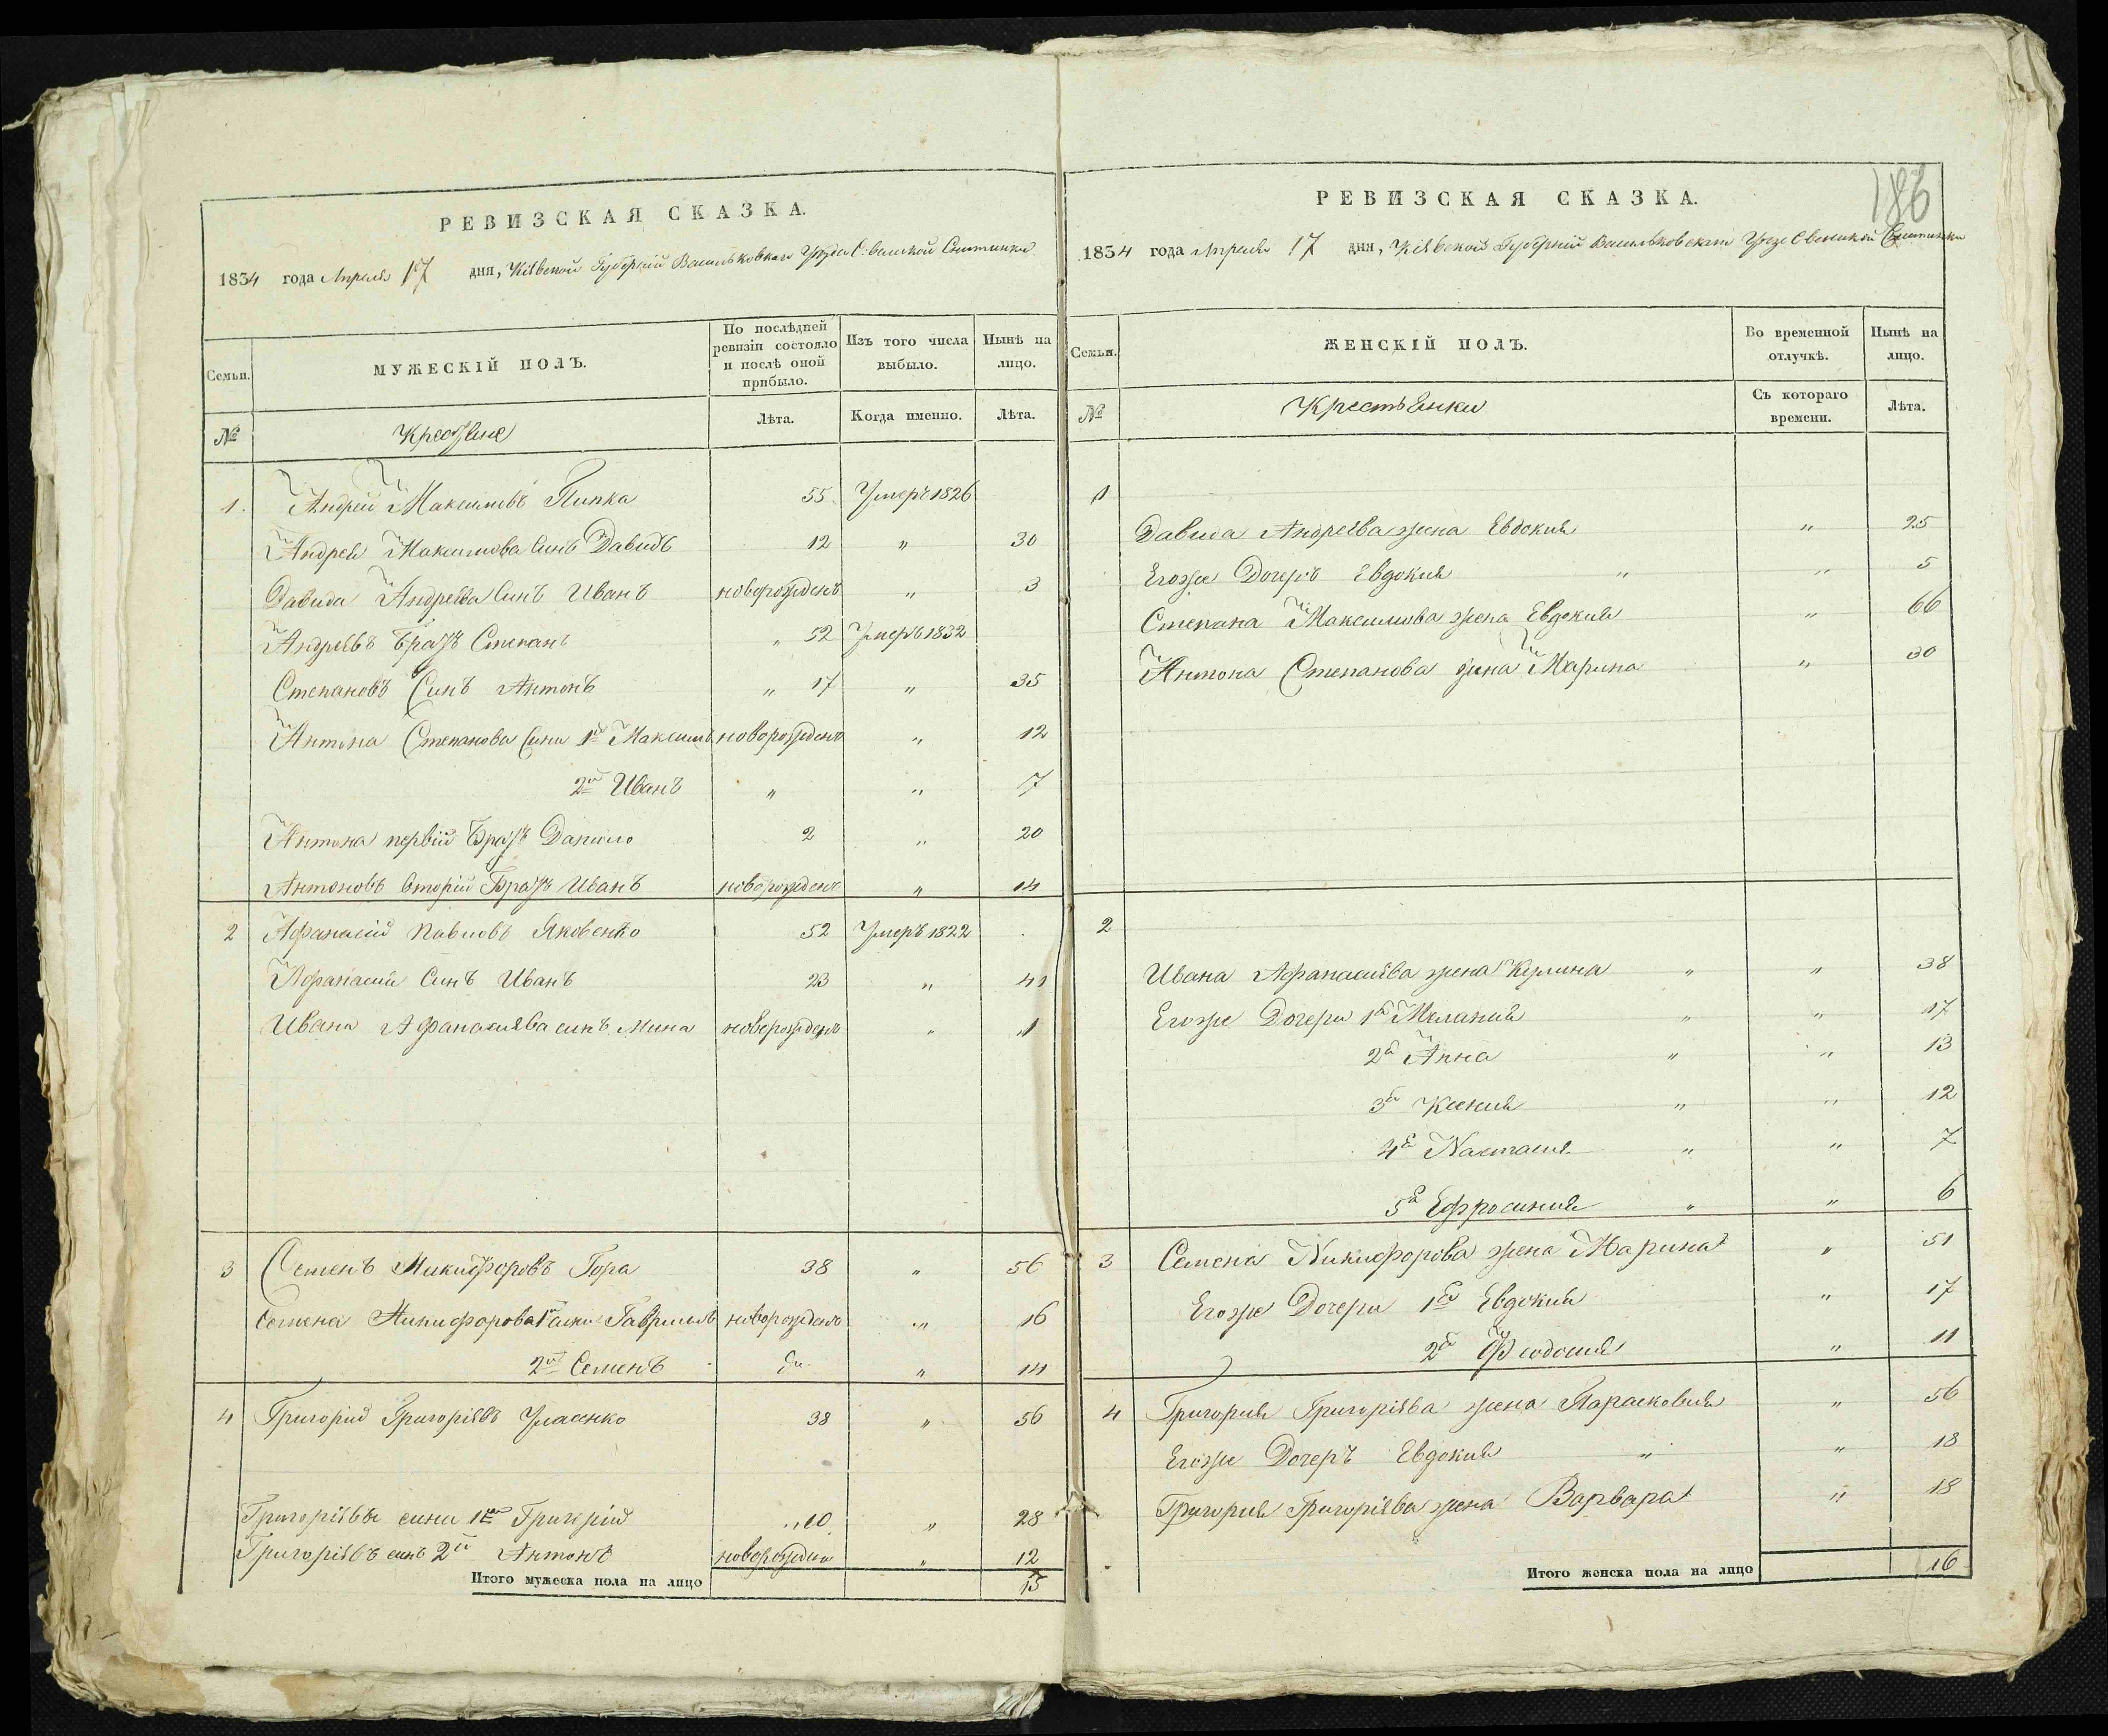 РЕВИЗСКАЯ СКАЗКА.
1834 года Апреля 17 дня, Кіевской Губерніи Васильковскаго Уезда С: Великой Снитинки
Семьи.
МУЖЕСКІЙ ПОЛЪ.
По послѣдней ревизіи состояло и послѣ оной прибыло.
Изъ того числа выбыло.
Нынѣ на лицо.
№
Крестяне
Лѣта.
Когда именно.
Лѣта.
1. Андрей Максимовъ Пипка 55 Умеръ 1826
Андрея Максимова Синъ Давидъ 12 " 30
Давида Андреева Синъ Иванъ новорожденъ " 3
Андреевъ Братъ Степанъ " 52 Умеръ 1832
Степановъ Синъ Антонъ " 17 " 35
Антона Степанова Сини 1й Максимъ новорожденъ " 12
2й Иванъ " " 7
Антона первій Братъ Данило 2 " 20
Антоновъ вторій Братъ Иванъ новорожденъ " 14
2 Афанасій Павловъ Яковенко 52 Умеръ 1822
Афанасия Синъ Иванъ 23 " 41
Ивана Афанасиева синъ Мина новорожденъ " 1
3 Семенъ Микифоровъ Гора 38 " 56
Семена Никифорова 1й сини Гаврило новорожденъ " 16
2й Семенъ " 14
4 Григорій Григоріевъ Уласенко 38 " 56
Григоріевы сини 1й Григорій 10 " 28
Григоріевъ синъ 2й Антонъ новорожденъ " 12
Итого мужеска пола на лицо 15
186
РЕВИЗСКАЯ СКАЗКА.
1834 года Апреля 17 дня, Кіевской Губерніи Васильковскаго Уезда С Великой Снитинки
Семьи.
ЖЕНСКІЙ ПОЛЪ.
Во временной отлучкѣ.
Нынѣ на лицо.
№
Крестьянки
Съ котораго времени.
Лѣта.
1
Давида Андреева жена Евдокия " 25
Егоже Дочеръ Евдокия " " 5
Степана Максимова жена Евдокия " 66
Антона Степанова жена Марина " 30
2
Ивана Афанасиева жена Кулина " " 38
Егоже Дочери 1я Мелания " " 17
2я Анна " " 13
3я Ксения " " 12
4я Настасия " " 7
5я Ефросиния " " 6
3 Семена Никифорова жена Марина " 51
Егоже Дочери 1я Евдокия " 17
2я Феодосия " 11
4 Григория Григоріева жена Парасковия " 56
Егоже Дочеръ Евдокия " " 18
Григория Григоріева жена Варвара " 18
Итого женска пола на лицо 16